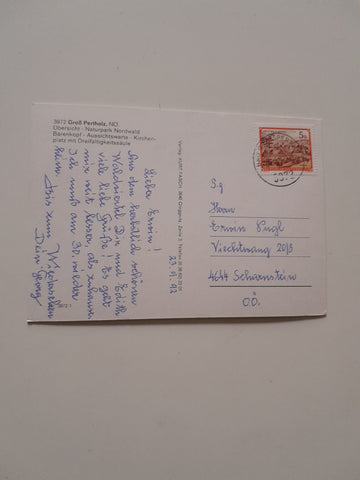 3972 Groß Pertholz, NÖ.
Übersicht - Naturpark Nordwald
Bärenkopf - Aussichtswarte - Kirchen-
platz mit Dreifaltigkeitssäule
23. 9. 92
Lieber Erwin!
Aus dem herbstlich schönen
Waldviertel Dir und Edith
viele liebe Grüße! Es geht
mir weit besser, als zuhause.
Ich muß am 30. wieder
heim.
Bis zum Wiedersehen
Dein Georg
Verlag: KURT FASCH, 3642
5 S
Sg
Herrn
Erwin Pugl
Viechtwang 20/3
4644 Scharnstein
O.Ö.